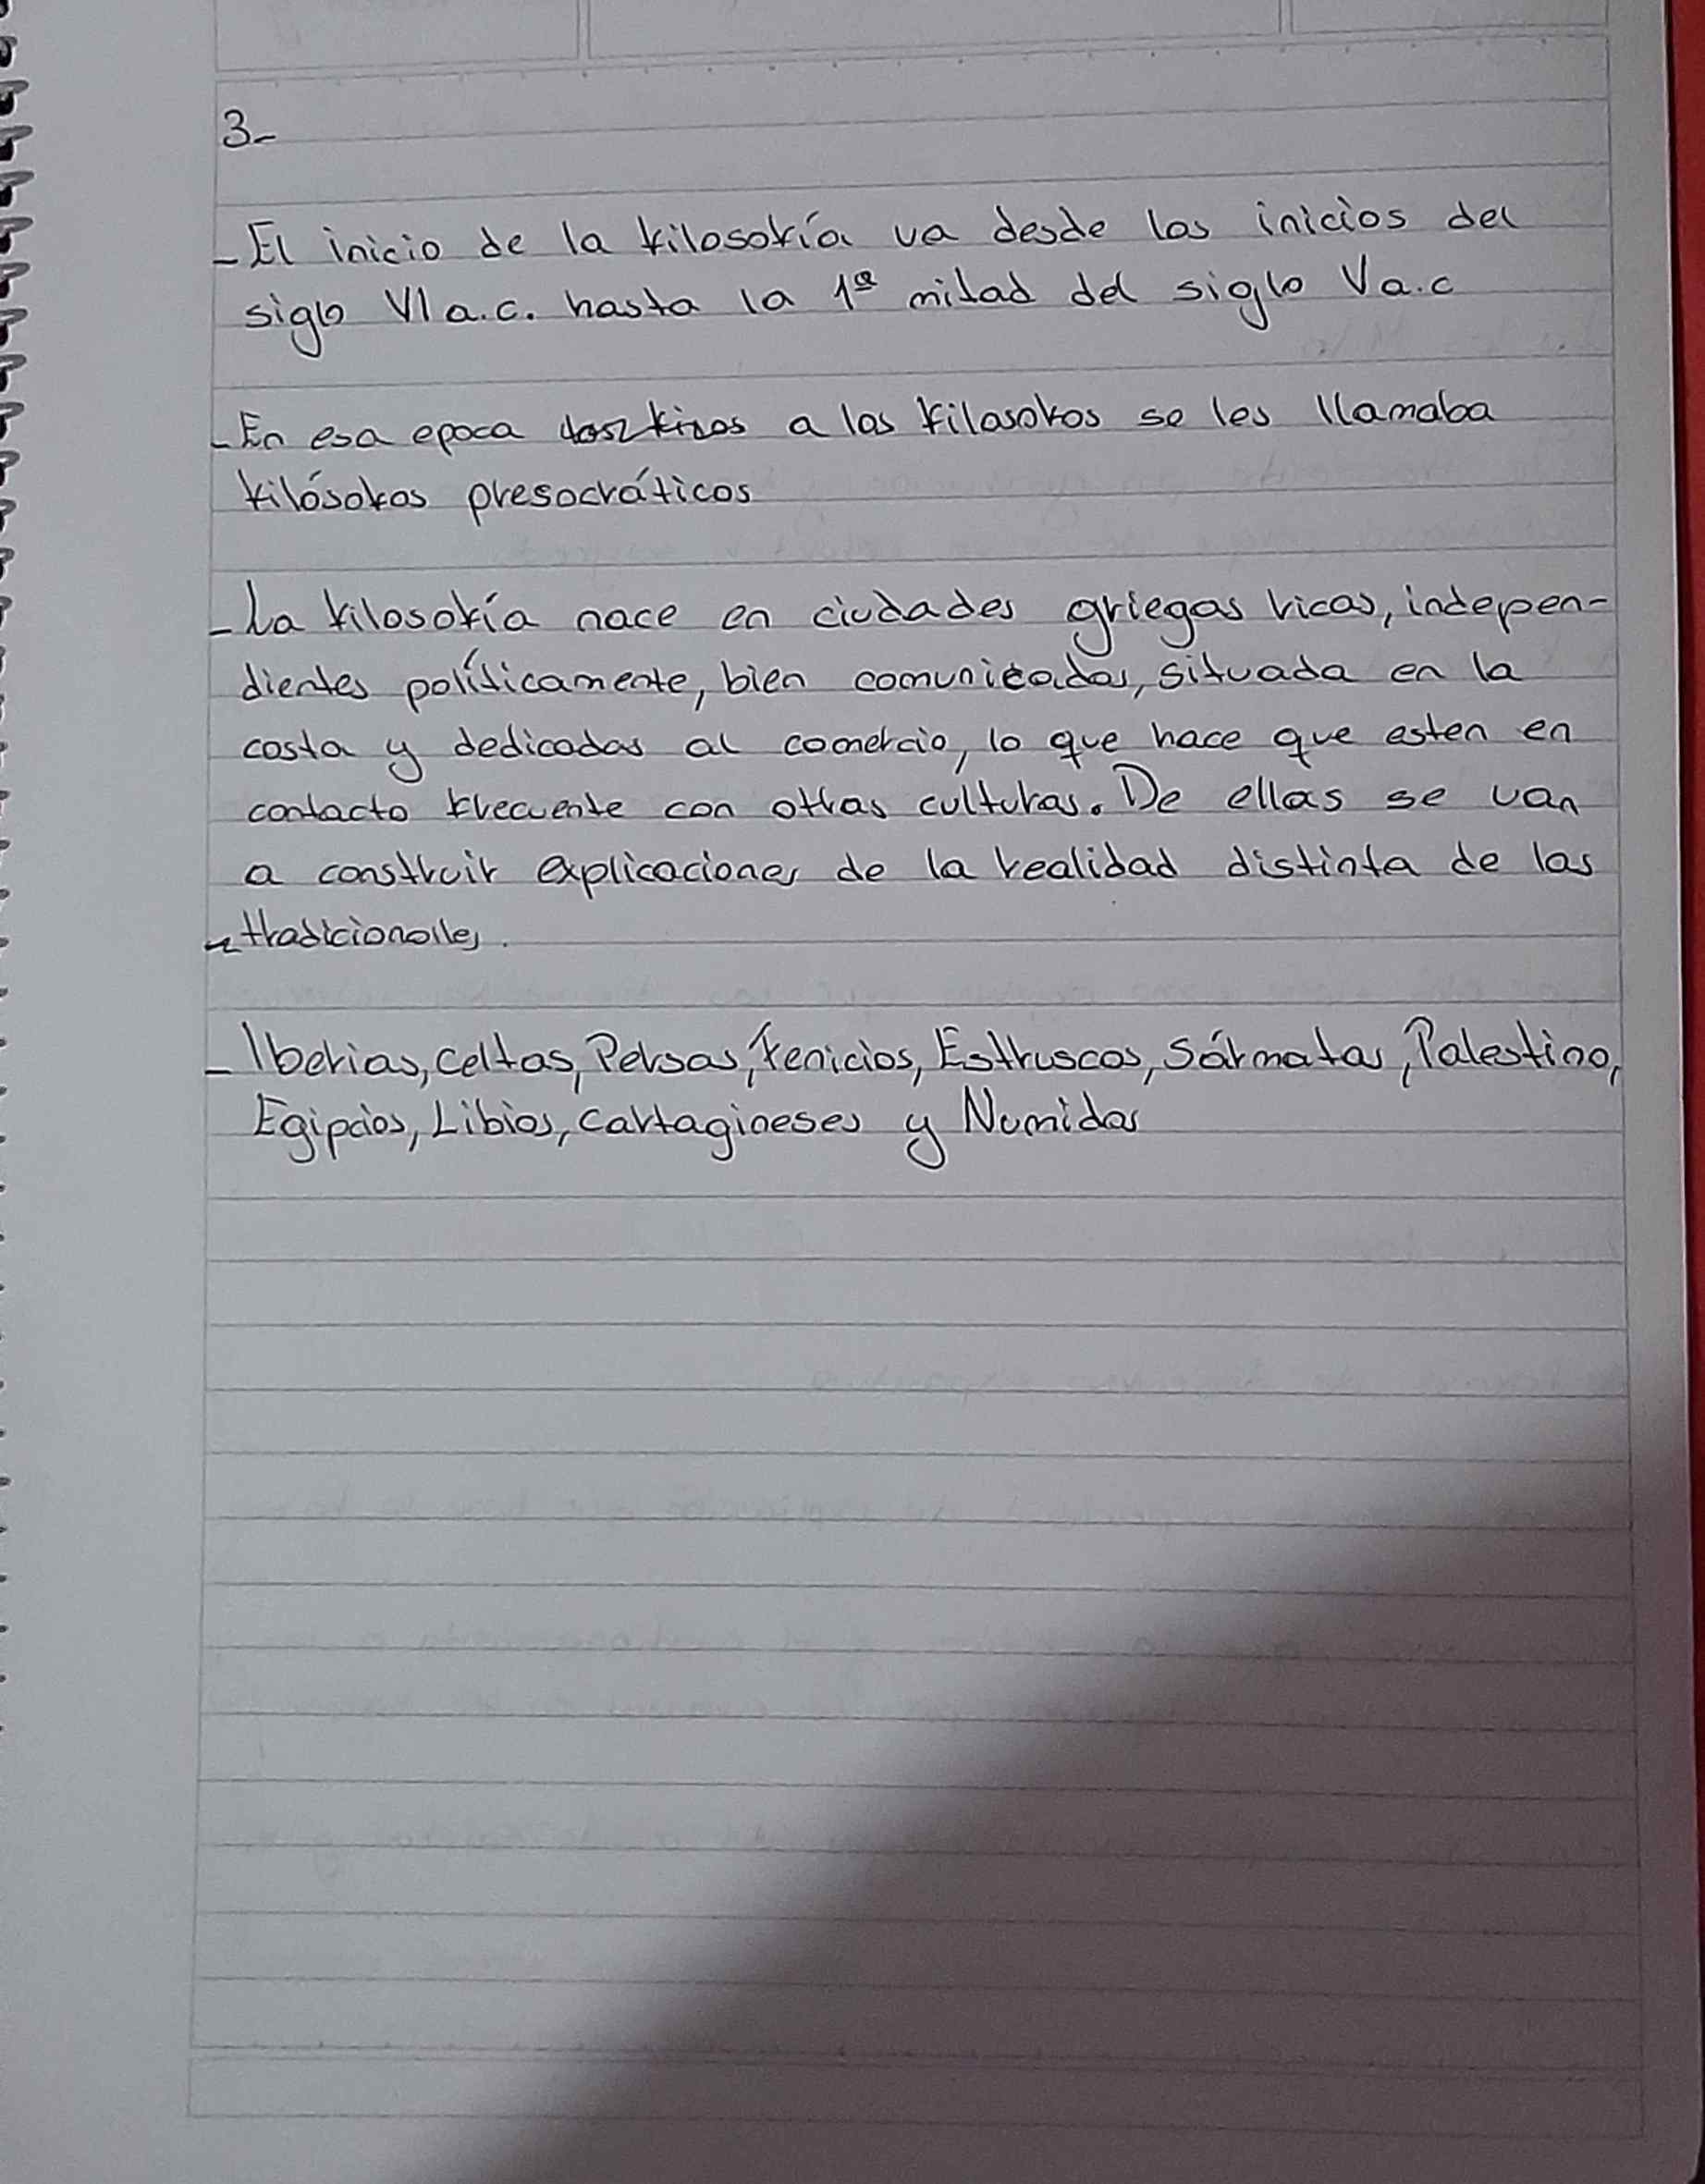 3-
- El inicio de la filosofía va desde los inicios del
siglo VI a.c. hasta la 1ª mitad del siglo V a.c
- En esa epoca a los filosofos se les llamaba
filósofos presocráticos
- La filosofía nace en ciudades griegas ricas, indepen-
dientes políticamente, bien comunicadas, situada en la
costa y dedicadas al comercio, lo que hace que esten en
contacto frecuente con otras culturas. De ellas se van
a construir explicaciones de la realidad distinta de las
tradicionales.
- Iberias, celtas, Persas, fenicios, Estruscos, Sármatas, Palestino,
Egipcios, Libios, cartagineses y Numidas